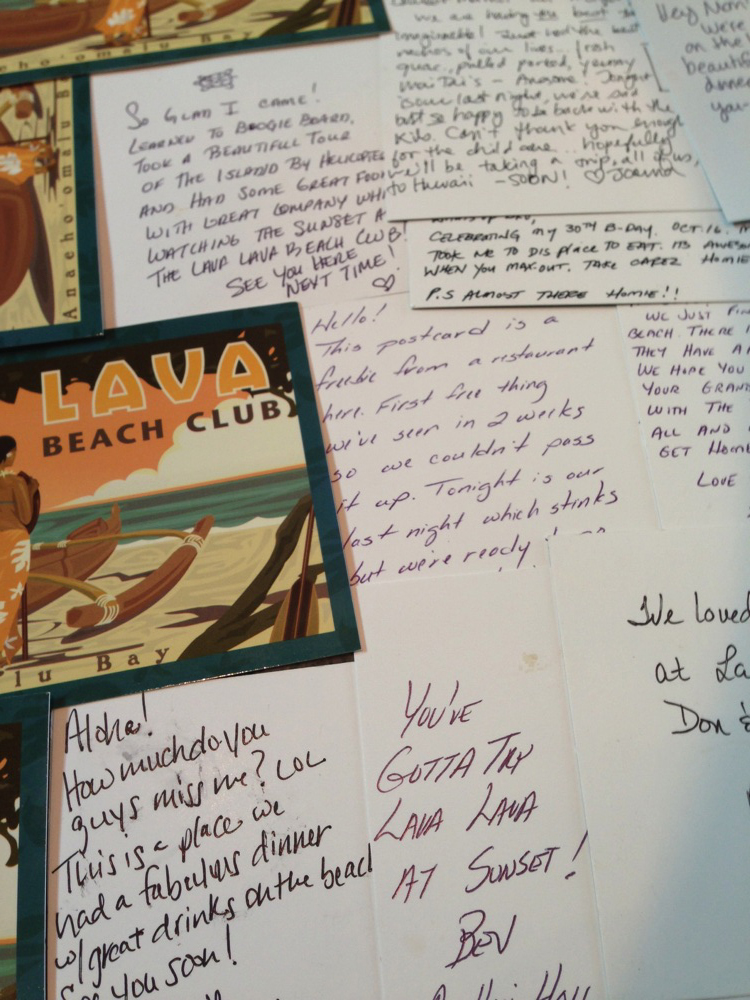 cho'omalu Bay
Anaeho'omalu B
SO GLAD I CAME!
LEARNED TO BOOGIE BOARD,
TOOK A BEAUTIFUL TOUR
OF THE ISLAND BY HELICOPTER
AND HAD SOME GREAT FOOD
WITH GREAT COMPANY WHI
WATCHING THE SUNSET A
THE LAVA LAVA BEACH CLUB!
SEE YOU HERE
NEXT TIME!
we are having the best
imaginable! Just had the best
nachos of our lives... fresh
guac., pulled porked, yummy
mai Tai's - Amazing! Tonight
is our last night, we're sad
but so happy to be back with the
kids. Can't thank you enough
for the child care... hopefully
we'll be taking a trip, all of us,
to Hawaii - SOON!
Hey
We're
on the
beautif
dinne
you
CELEBRATING MY 30TH B-DAY. OCT. 16.
TOOK ME TO DIS PLACE TO EAT. ITS AWESO
WHEN YOU MAX OUT. TAKE CAREZ HOMIE
P.S ALMOST THERE HOMIE!!
Hello!
This postcard is a
freebie from a restaurant
here. First free thing
we've seen in 2 weeks
so we couldn't pass
it up. Tonight is our
last night which stinks
but we're ready
WE JUST
BEACH. THERE
THEY HAVE A
WE HOPE YOU
YOUR GRAN
WITH THE
ALL AND
GET HOME
LOVE
LAVA
BEACH CLUB
lu Bay
We loved
at La
Don &
Aloha!
How much do you
guys miss me? LOL
This is a place we
had a fabulous dinner
w/ great drinks on the beach
See you soon!
YOU'VE
GOTTA TRY
LAVA LAVA
AT SUNSET!
BEV